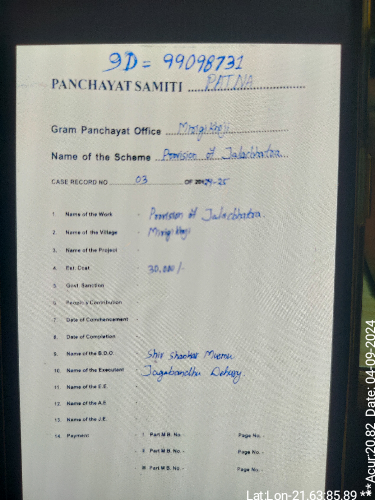 ID = 99098731
PANCHAYAT SAMITI PATNA
Gram Panchayat Office Mirigikhoji
Name of the Scheme Provision of Jalachhatra
CASE RECORD NO 03 OF 2024-25
1. Name of the Work - Provision of Jalachhatra
2. Name of the Village - Mirigikhoji
3. Name of the Project -
4. Est. Cost - 30,000/-
5. Govt. Sanction
6. People's Contribution -
7. Date of Commencement -
8. Date of Completion -
9. Name of the B.D.O - Shiv Shankar Murmu
10. Name of the Executant - Jagabandhu Dehury
11. Name of the E.E. -
12. Name of the A.E. -
13. Name of the J.E. -
14. Payment - I Part M.B. No. - Page No. -
II Part M.B. No. - Page No. -
III Part M.B. No. - Page No. -
Lat:Lon-21.63:85.89 *** Acur:20.82 Date: 04-09-2024